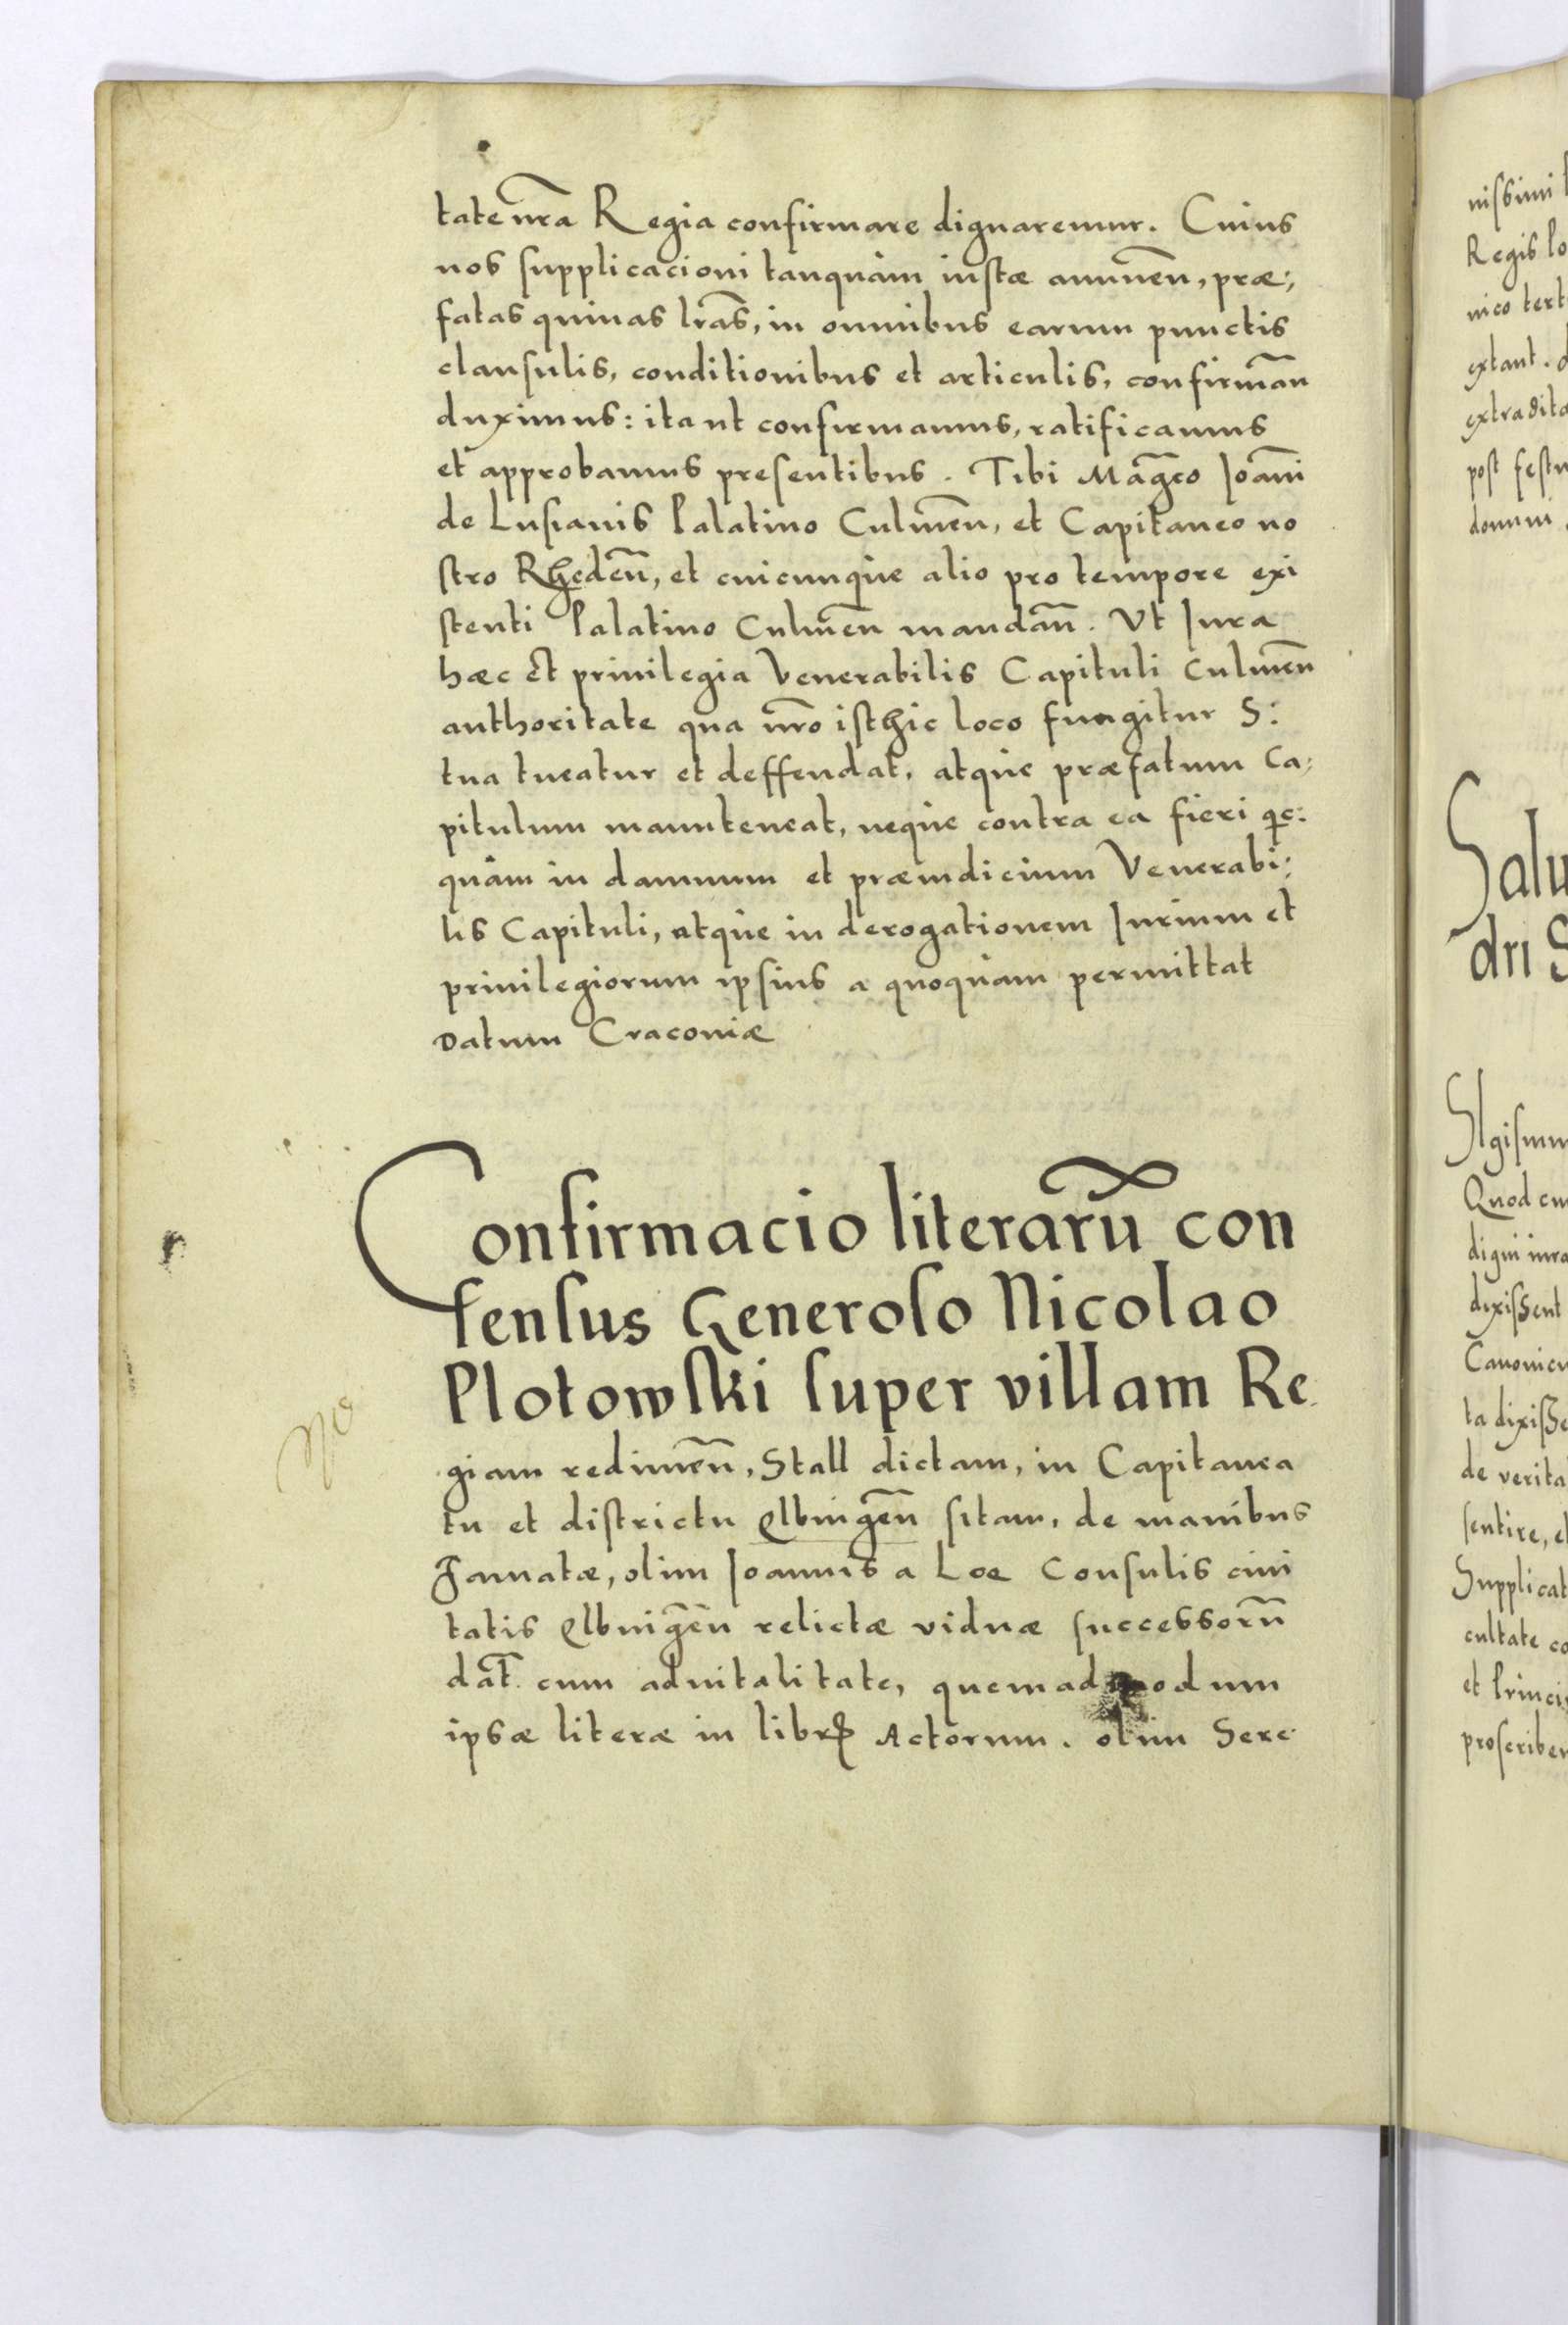 tate nr̃a Regia confirmare dignaremur. Cuius
nos supplicacioni tanquàm iustæ annueñ, præ:
fatas quinas lr̃as, in omnibus earum punctis
clausulis, conditionibus et articulis, confirmañ
duximus: ita ut confirmamus, ratificamus
et approbamus presentibus. Tibi Mag̃co Ioãni
de Lusianis Palatino Culmeñ, et Capitaneo no
stro Rhedeñ, et cuicunque alio pro tempore exi
stenti Palatino Culmeñ mandañ. Ut Iura
hæc et priuilegia Venerabilis Capituli Culmeñ
authoritate qua nr̃o isthic loco fungitur S:
tua tueatur et deffendat, atque præfatum Ca:
pitulum manuteneat, neque contra ea fieri qic:
quàm in damnum et præiudicium Venerabi:
lis Capituli, atque in derogationem Iurium et
priuilegiorum ipsius a quoquàm permittat
Datum Cracouiæ
Confirmacio literarũ con
sensus Generoso Nicolao
Plotowski super villam Re
giam redimeñ, Stall dictam, in Capitanea
tu et districtu Elbingeñ sitam, de manibus
Famatæ, olim Ioannis a Loe Consulis ciui
tatis Elbingeñ relictæ viduæ successorũ
dat̃. cum aduitalitate, quemadmodum
ipsæ literæ in libris Actorum. olim Sere
nissimi
Regis
nico
extant.
post
Salu
dri S
Sigismu
Quod
digni
dixissent
ta
de verita
sentire,
Supplicat
cultate
et Princi